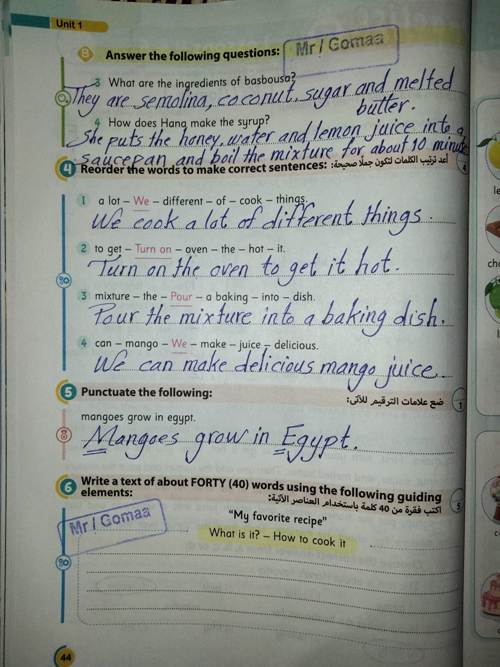 Unit 1
B Answer the following questions:
Mr / Gomaa
3 What are the ingredients of basbousa?
They are semolina, coconut, sugar and melted
butter.
4 How does Hana make the syrup?
She puts the honey, water and lemon juice into a
saucepan and boil the mixture for about 10 minute
4 Reorder the words to make correct sentences: أعد ترتيب الكلمات لتكون جملًا صحيحة:
1 a lot – We – different – of – cook – things.
We cook a lot of different things.
2 to get – Turn on – oven – the – hot – it.
Turn on the oven to get it hot.
3 mixture – the – Pour – a baking – into – dish.
Pour the mixture into a baking dish.
4 can – mango – We – make – juice – delicious.
We can make delicious mango juice.
5 Punctuate the following: ضع علامات الترقيم للآتى:
mangoes grow in egypt.
Mangoes grow in Egypt.
6 Write a text of about FORTY (40) words using the following guiding
elements: اكتب فقرة من 40 كلمة باستخدام العناصر الآتية:
Mr / Gomaa
"My favorite recipe"
What is it? – How to cook it
44